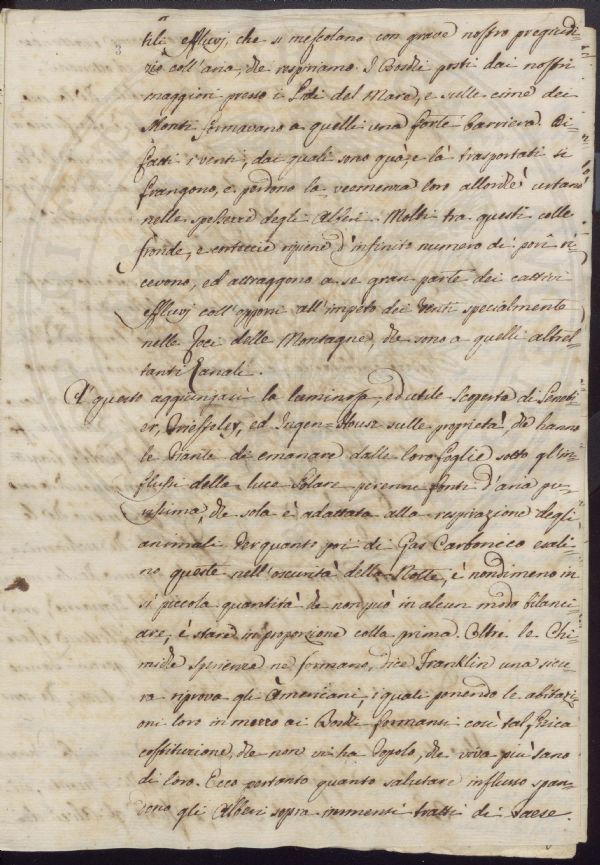 tili effluvj, che si mescolano con grave nostro pregiudi-
zio coll'aria, che respiriamo. I Boschi posti dai nostri
maggiori presso i Lidi del Mare, e sulle cime dei
Monti formavano a quelli una forte barriera. Di-
fatti i venti, dai quali sono quà, e là trasportati si
frangono, e perdono la veemenza loro allorchè urtano
nelle spessezze degli Alberi. Molti tra questi colle
fronde, e corteccie ripiene d'infinito numero di pori ri-
cevono, ed attraggono a se gran parte dei cattivi
effluvj coll'opporsi all'impeto dei Venti specialmente
nelle Foci delle Montagne, che sono a quelli altret-
tanti Canali.
A questo aggiungasi la luminosa, ed utile scoperta di Senebi-
er, Priesteley, ed Ingen=House sulle proprietà, che hanno
le Piante di emanare dalle loro foglie sotto gl'in-
flussi della luce Solare perenni fonti d'aria pu-
rissima, che sola è adattata alla respirazione degli
animali. Per quanto poi di Gas Carbonico esali-
no queste nell'oscurità della Notte, è nondimeno in
sì piccola quantità che non può in alcun modo bilanci-
are, e stare in proporzione colla prima. Oltre le Chi-
miche sperienze ne formano, dice Franklin una sicu-
ra riprova gli Americani, i quali ponendo le abitazi-
oni loro in mezzo ai Boschi formansi così tal fisica
costituzione, che non vi ha Popolo, che viva più sano
di loro. Ecco pertanto quanto salutare influsso span-
dono gli Alberi sopra immensi tratti di Paese.